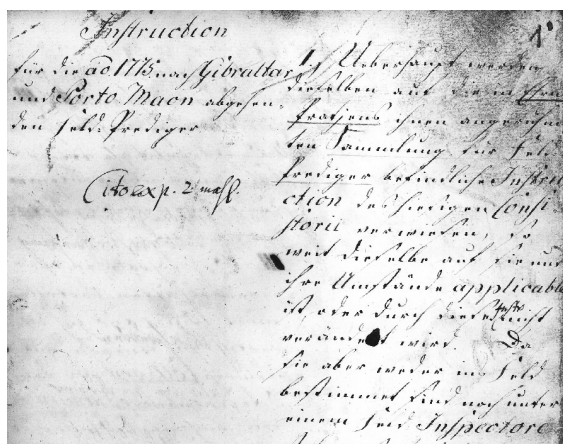 Instruction
für die aō 1775 nach Gibraltar
und Porto Maon abgesen-
den Feld-Prediger
exp. 2 mahl.
1.
1, Ueberhaupt werden
dieselben auf die in
ihnen
ten Sammlung für Feld
Prediger befindliche Instru
ction des hiesigen Consi
storii verwiesen, so
weit dieselbe auf sie und
ihre Umstände applicable
ist, oder durch diese nicht
verändert wird. Da
sie aber weder im Feld
bestimmet sind noch unter
einem Feld Inspectore